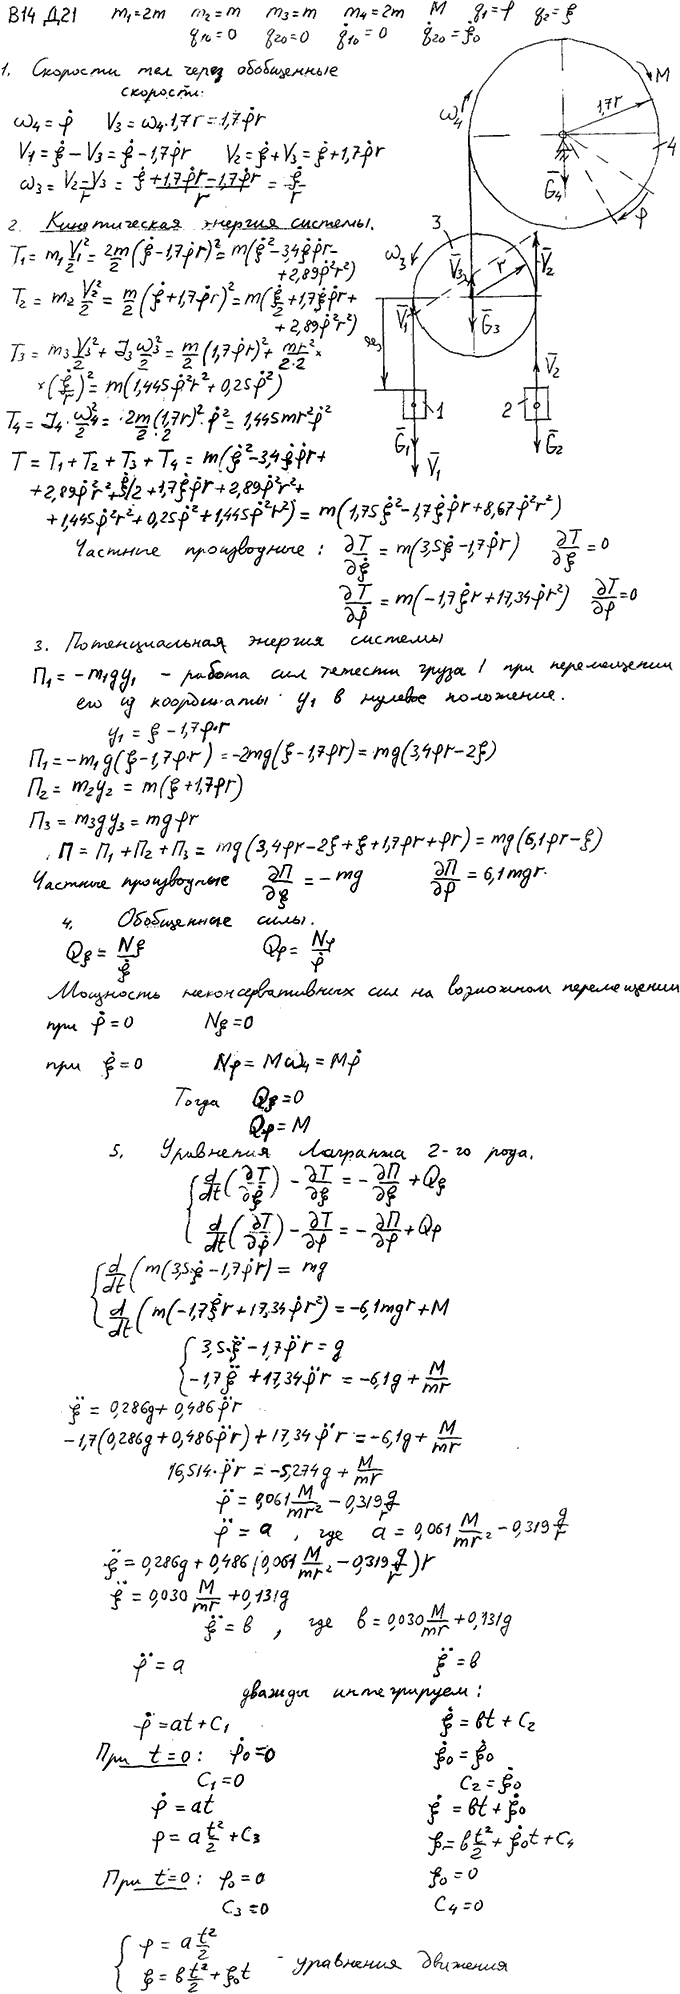 В14 Д21 m₁=2m m₂=m m₃=m m₄=2m M q₁=φ q₂=ξ
q₁₀=0 q₂₀=0 q̇₁₀=0 q̇₂₀=ξ̇₀
1. Скорости тел через обобщенные
скорости:
ω₄=φ̇ V₃=ω₄·1,7r=1,7φ̇r
V₁=ξ̇-V₃=ξ̇-1,7φ̇r V₂=ξ̇+V₃=ξ̇+1,7φ̇r
ω₃=(V₂-V₃)/r=(ξ̇+1,7φ̇r-1,7φ̇r)/r=ξ̇/r
2. Кинетическая энергия системы.
T₁=m₁V₁²/2=2m/2(ξ̇-1,7φ̇r)²=m(ξ̇²-3,4ξ̇φ̇r-
+2,89φ̇²r²)
T₂=m₂V₂²/2=m/2(ξ̇+1,7φ̇r)²=m(ξ̇/2+1,7ξ̇φ̇r+
+2,89φ̇²r²)
T₃=m₃V₃²/2+J₃ω₃²/2=m/2(1,7φ̇r)²+mr²/(2·2)×
×(ξ̇/r)²=m(1,445φ̇²r²+0,25φ̇²)
T₄=J₄·ω₄²/2=2m(1,7r)²/(2·2)·φ̇²=1,445mr²φ̇²
T=T₁+T₂+T₃+T₄=m(ξ̇²-3,4ξ̇φ̇r+
+2,89φ̇²r²+ξ̇/2+1,7ξ̇φ̇r+2,89φ̇²r²+
+1,445φ̇²r²+0,25φ̇²+1,445φ̇²r²)=m(1,75ξ̇²-1,7ξ̇φ̇r+8,67φ̇²r²)
Частные производные: ∂T/∂ξ̇=m(3,5ξ̇-1,7φ̇r) ∂T/∂ξ=0
∂T/∂φ̇=m(-1,7ξ̇r+17,34φ̇r²) ∂T/∂φ=0
3. Потенциальная энергия системы
П₁=-m₁gy₁ - работа сил тяжести груза 1 при перемещении
его из координаты y₁ в нулевое положение.
y₁=ξ-1,7φ·r
П₁=-m₁g(ξ-1,7φ·r)=-2mg(ξ-1,7φr)=mg(3,4φr-2ξ)
П₂=m₂y₂=m(ξ+1,7φr)
П₃=m₃gy₃=mg·φr
П=П₁+П₂+П₃=mg(3,4φr-2ξ+ξ+1,7φr+φr)=mg(6,1φr-ξ)
Частные производные ∂П/∂ξ=-mg ∂П/∂φ=6,1mgr.
4. Обобщенные силы.
Qξ=Nξ/ξ̇ Qφ=Nφ/φ̇
Мощность неконсервативных сил на возможном перемещении
при φ̇=0 Nξ=0
при ξ̇=0 Nφ=Mω₄=Mφ̇
Тогда Qξ=0
Qφ=M
5. Уравнения Лагранжа 2-го рода.
d/dt(∂T/∂ξ̇)-∂T/∂ξ=-∂П/∂ξ+Qξ
d/dt(∂T/∂φ̇)-∂T/∂φ=-∂П/∂φ+Qφ
d/dt(m(3,5ξ̇-1,7φ̇r)=mg
d/dt(m(-1,7ξ̇r+17,34φ̇r²)=-6,1mgr+M
3,5·ξ̈-1,7φ̈r=g
-1,7ξ̈+17,34φ̈r=-6,1g+M/mr
ξ̈=0,286g+0,486φ̈r
-1,7(0,286g+0,486φ̈r)+17,34φ̈r=-6,1g+M/mr
16,514·φ̈r=-5,274g+M/mr
φ̈=0,061M/mr²-0,319g/r
φ̈=a, где a=0,061M/mr²-0,319g/r
ξ̈=0,286g+0,486(0,061M/mr²-0,319g/r)r
ξ̈=0,030M/mr+0,131g
ξ̈=в, где в=0,030M/mr+0,131g
φ̈=a ξ̈=в
дважды интегрируем:
φ̇=at+C₁ ξ̇=вt+C₂
При t=0: φ̇₀=0 ξ̇₀=ξ̇₀
C₁=0 C₂=ξ̇₀
φ̇=at ξ̇=вt+ξ̇₀
φ=at²/2+C₃ ξ=вt²/2+ξ̇₀t+C₄
При t=0: φ₀=0 ξ₀=0
C₃=0 C₄=0
φ=at²/2
ξ=вt²/2+ξ̇₀t - уравнения движения
M
1,7r
ω₄
4
G̅₄
φ
3
ω₃
r
V̅₃
V̅₂
V̅₁
G̅₃
V̅₂
1
2
G̅₁
G̅₂
V̅₁